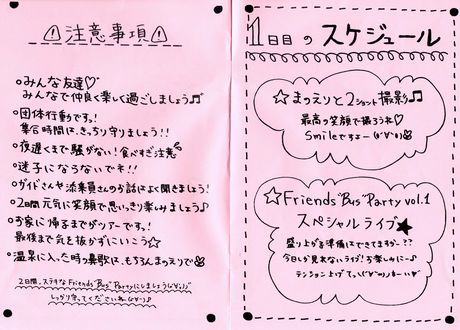 ⚠注意事項⚠
○みんな友達♡
みんなで仲良く楽しく過ごしましょう♫
○団体行動ですっ!
集合時間は、きっちり守りましょう!!
○夜遅くまで騒がない!食べすぎ注意
○迷子にならないでネ!!
○ガイドさんや添乗員さんのお話はよく聞きましょう!
○2日間元気に笑顔で思いっきり楽しみましょう♪
○お家に帰るまでがツアーです。
最後まで気を抜かずにいこう☆
○温泉に入った時の鼻歌は、もちろんまつえりで
2日間、ステキなFriends Bus Partyにしましょう(∪∀∪)ノ
しっかり守ってくださいね(∪∀∪)♪
1日目のスケジュール
☆まつえりと2ショット撮影♫
最高の笑顔で撮ろうね♡
Smileですよー(∪'∀'∪)
☆Friends Bus Party vol.1
スペシャルライブ★
盛り上がる準備はできてますかー??
今日しか見れないライブ!お楽しみに〜♪
テンション上げてっ